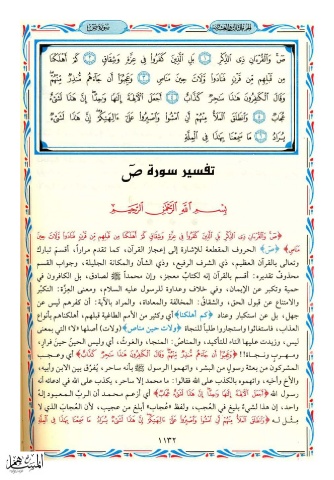 صٓ وَالْقُرْآنِ ذِي الذِّكْرِ ۝ بَلِ الَّذِينَ كَفَرُوا فِي عِزَّةٍ وَشِقَاقٍ ۝ كَمْ أَهْلَكْنَا
مِن قَبْلِهِم مِّن قَرْنٍ فَنَادَوا وَّلَاتَ حِينَ مَنَاصٍ ۝ وَعَجِبُوا أَن جَاءَهُم مُّنذِرٌ مِّنْهُمْ
وَقَالَ الْكَافِرُونَ هَٰذَا سَاحِرٌ كَذَّابٌ ۝ أَجَعَلَ الْآلِهَةَ إِلَٰهًا وَاحِدًا إِنَّ هَٰذَا لَشَيْءٌ
عُجَابٌ ۝ وَانطَلَقَ الْمَلَأُ مِنْهُمْ أَنِ امْشُوا وَاصْبِرُوا عَلَىٰ آلِهَتِكُمْ إِنَّ هَٰذَا لَشَيْءٌ
يُرَادُ ۝ مَا سَمِعْنَا بِهَٰذَا فِي الْمِلَّةِ
تفسير سورة صٓ
بِسْمِ اللَّهِ الرَّحْمَٰنِ الرَّحِيمِ
﴿صٓ وَالْقُرْآنِ ذِي الذِّكْرِ بَلِ الَّذِينَ كَفَرُوا فِي عِزَّةٍ وَشِقَاقٍ كَمْ أَهْلَكْنَا مِن قَبْلِهِم مِّن قَرْنٍ فَنَادَوا وَّلَاتَ حِينَ
مَنَاصٍ﴾ ﴿صٓ﴾ الحروف المقطعة للإشارة إلى إعجاز القرآن، كما تقدم مراراً، أقسم تبارك
وتعالى بالقرآن العظيم، ذي الشرف الرفيع، وذي الشأن والمكانة الجليلة، وجواب القسم
محذوف تقديره: أقسم بالقرآن إنه لكتاب معجز، وإن محمداً ﷺ لصادق، بل الكافرون في
حمية وتكبر عن الإيمان، وفي خلاف وعداوة للرسول عليه السلام، ومعنى العِزَّة: التكبر
والامتناع عن قبول الحق، والشقاق: المخالفة والمعاداة، والمراد بالآية: أن كفرهم ليس عن
جهل، بل عن استكبار وعناد ﴿كم أهلكنا﴾ أي وكثير من الأمم الطاغية قبلهم، أهلكناهم بأنواع
العذاب، فاستغاثوا واستجاروا طلباً للنجاة ﴿ولات حين مناص﴾ (ولات) أصلها «لا» التي بمعنى
ليس، وزيدت عليها التاء للتأكيد، والمناص: المنجا، والغوث، أي وليس الحينُ حينَ فرار،
ومهرب ونجاة!! ﴿وَعَجِبُوا أَن جَاءَهُم مُّنذِرٌ مِّنْهُمْ وَقَالَ الْكَافِرُونَ هَٰذَا سَاحِرٌ كَذَّابٌ﴾ أي وعجب
المشركون من بعثة رسول من البشر، واتهموا الرسول ﷺ بأنه ساحر، يُفرِّق بين الابن وأبيه،
والأخ وأخيه، واتهموه بالكذب على الله فقالوا: ما محمد إلا ساحر، يكذب على الله في ادعائه أنه
رسول الله ﴿أَجَعَلَ الْآلِهَةَ إِلَٰهًا وَاحِدًا إِنَّ هَٰذَا لَشَيْءٌ عُجَابٌ﴾ أي أزعم محمد أن الربَّ المعبود إله
واحد، إن هذا لشيء بليغ في العجب، ولفظ «عُجاب» أبلغ من عجيب، لأن العُجاب الذي لا
مثل له ﴿وَانطَلَقَ الْمَلَأُ مِنْهُمْ أَنِ امْشُوا وَاصْبِرُوا عَلَىٰ آلِهَتِكُمْ إِنَّ هَٰذَا لَشَيْءٌ يُرَادُ مَا سَمِعْنَا بِهَٰذَا فِي الْمِلَّةِ
١١٣٢